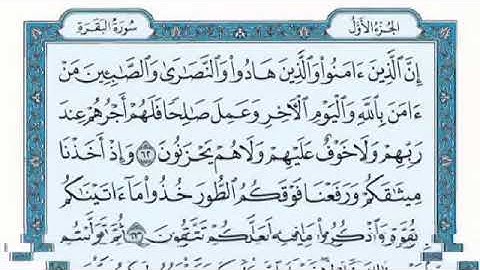 الجزء الأول
سورة البقرة
إِنَّ ٱلَّذِينَ ءَامَنُوا۟ وَٱلَّذِينَ هَادُوا۟ وَٱلنَّصَـٰرَىٰ وَٱلصَّـٰبِـِٔينَ مَنْ
ءَامَنَ بِٱللَّهِ وَٱلْيَوْمِ ٱلْـَٔاخِرِ وَعَمِلَ صَـٰلِحًا فَلَهُمْ أَجْرُهُمْ عِندَ
رَبِّهِمْ وَلَا خَوْفٌ عَلَيْهِمْ وَلَا هُمْ يَحْزَنُونَ ٦٢ وَإِذْ أَخَذْنَا
مِيثَـٰقَكُمْ وَرَفَعْنَا فَوْقَكُمُ ٱلطُّورَ خُذُوا۟ مَآ ءَاتَيْنَـٰكُم
بِقُوَّةٍ وَٱذْكُرُوا۟ مَا فِيهِ لَعَلَّكُمْ تَتَّقُونَ ٦٣ ثُمَّ تَوَلَّيْتُم